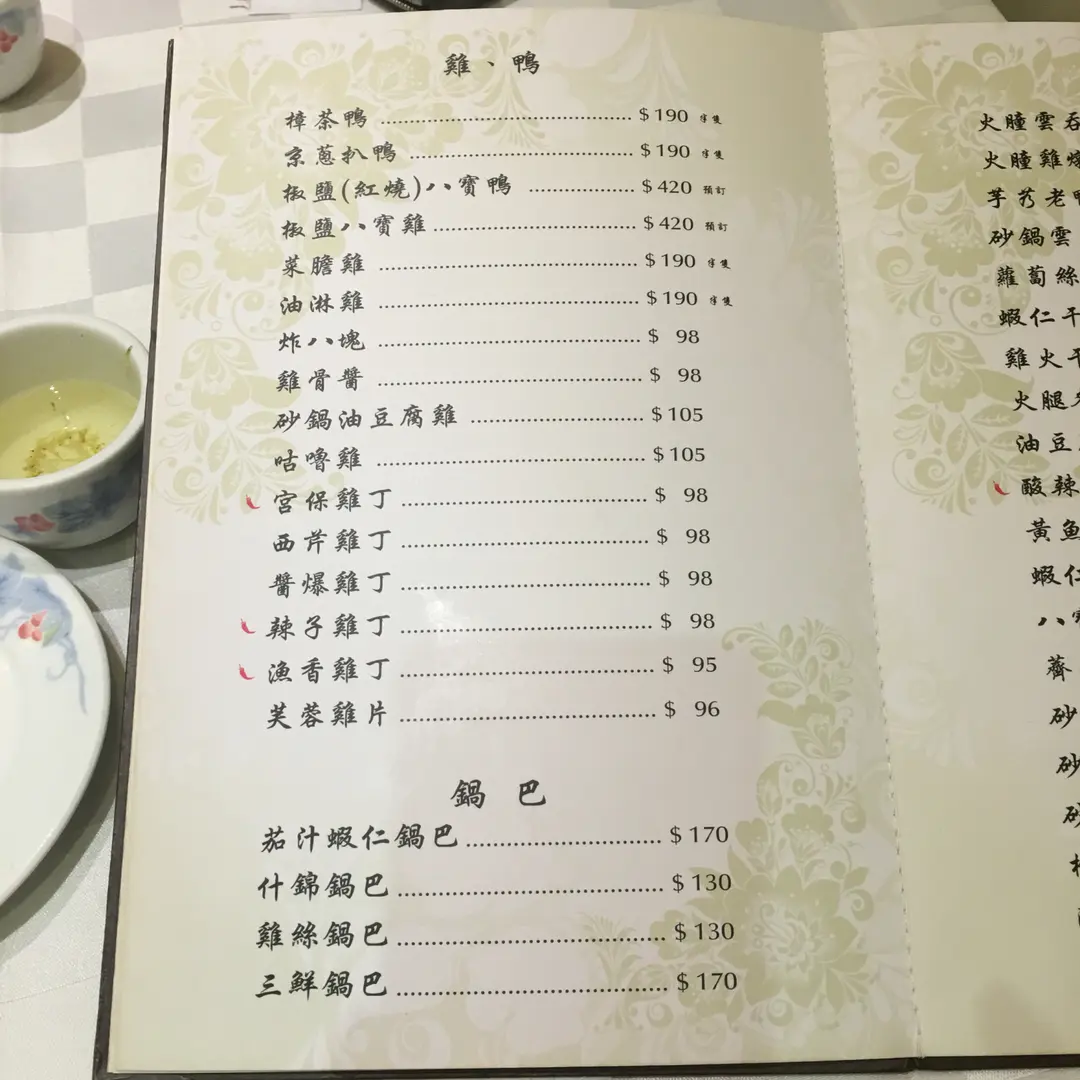 雞、鴨
樟茶鴨 $190 半隻
京蔥扒鴨 $190 半隻
椒鹽(紅燒)八寶鴨 $420 預訂
椒鹽八寶雞 $420 預訂
菜膽雞 $190 半隻
油淋雞 $190 半隻
炸八塊 $ 98
雞骨醬 $ 98
砂鍋油豆腐雞 $105
咕嚕雞 $105
宮保雞丁 $ 98
西芹雞丁 $ 98
醬爆雞丁 $ 98
辣子雞丁 $ 98
漁香雞丁 $ 95
芙蓉雞片 $ 96
鍋巴
茄汁蝦仁鍋巴 $170
什錦鍋巴 $130
雞絲鍋巴 $130
三鮮鍋巴 $170
火瞳雲吞
火瞳雞
芋艿老鴨
砂鍋雲
蘿蔔絲
蝦仁干
雞火干
火腿
油豆
酸辣
黃魚
蝦仁
八寶
薺
砂
砂
砂